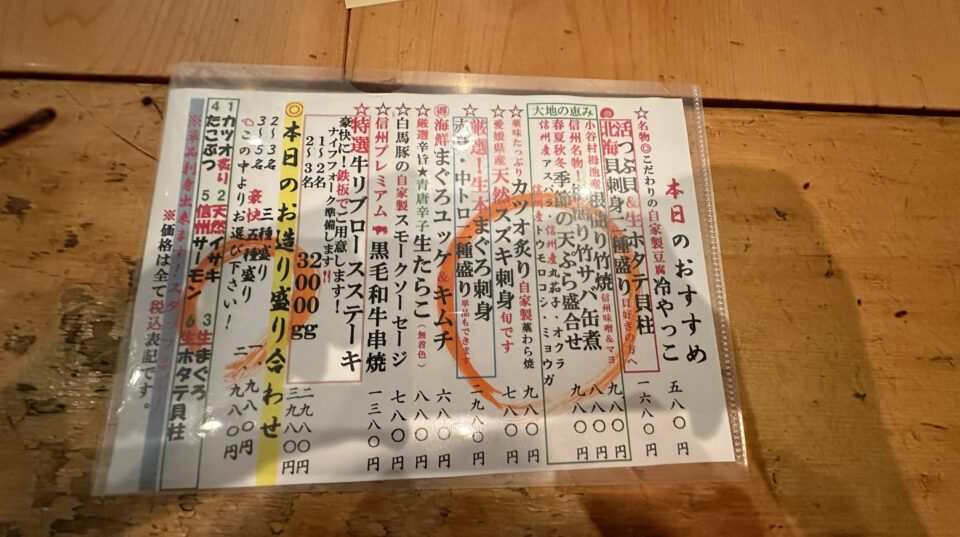 本日のおすすめ
☆名物◎こだわりの自家製豆腐冷やっこ 五八〇円
活つぶ貝&生ホタテ貝柱
北海貝刺身二種盛り 貝好きの方へ 一六八〇円
大地の恵み
小谷村栂池産根曲り竹焼 信州味噌&マヨ 九八〇円
信州名物!根曲り竹サバ缶煮 八八〇円
春夏秋冬季節の天ぷら盛合せ 九八〇円
信州産アスパラ・信州産丸茄子・オクラ
信州産トウモロコシ・ミョウガ
☆薬味たっぷりカツオ炙り自家製藁わら焼 九八〇円
☆愛媛県産天然スズキ刺身旬です 七八〇円
☆厳選!生本まぐろ刺身
赤身・中トロ二種盛り 単品もできます 二九八〇円
得海鮮まぐろユッケ&キムチ 六八〇円
☆厳選辛旨★青唐辛子生たらこ(無着色) 八八〇円
☆白馬豚の自家製スモークソーセージ 七八〇円
☆信州プレミアム黒毛和牛串焼 一三八〇円
☆特選牛リブロースステーキ
豪快に!鉄板でご用意します!
ナイフフォーク準備します
1~2名 200g 二九八〇円
2~3名 300g 三九八〇円
◎本日のお造り盛り合わせ
2~3名 三種盛り 一、九八〇円
3~5名 豪快五種盛り 二、九八〇円
この中よりお選び下さい!
1カツオ炙り 2天然イサキ 3生まぐろ
4たこぶつ 5信州サーモン 6生ホタテ貝柱
※価格は全て税込表記です。